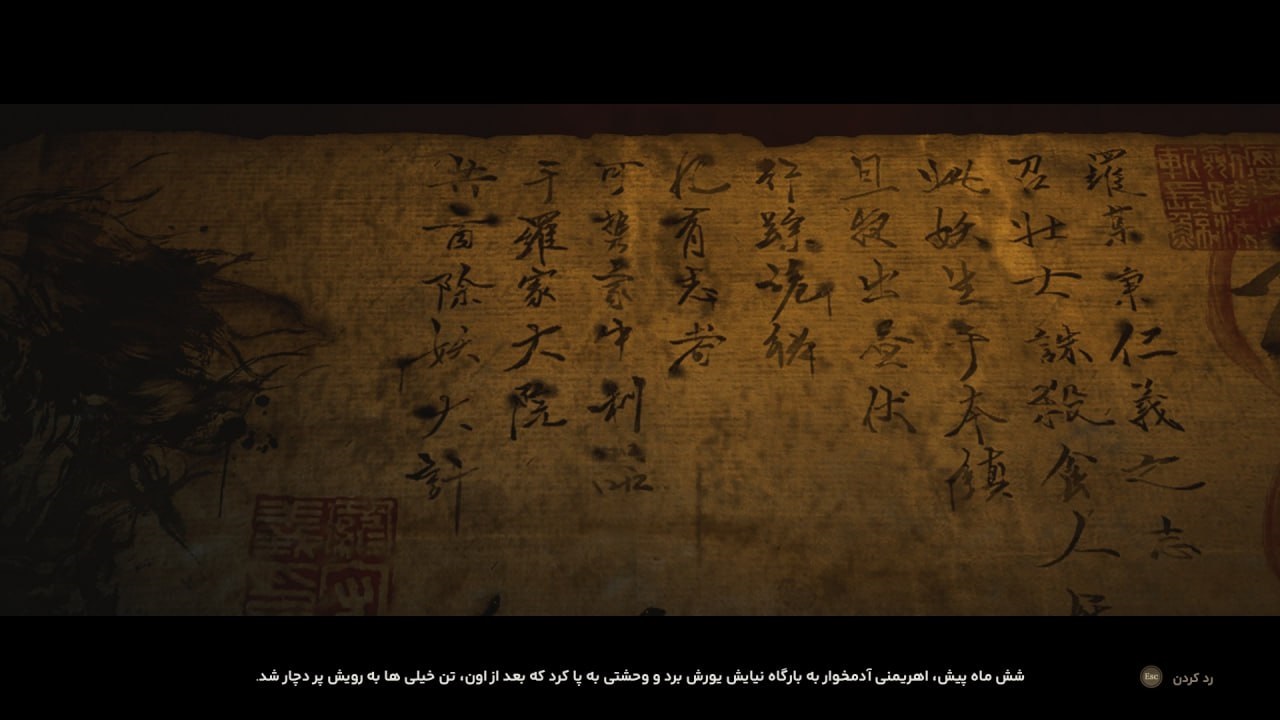 羅某秉仁義之志
召壮士誅殺食人
此妖生于本鎮
旦夜出昼伏
行踪诡秘
凡有志者
可家中利器
于羅家大院
共商除妖大計
شش ماه پیش، اهریمنی آدمخوار به بارگاه نیایش یورش برد و وحشتی به پا کرد که بعد از اون، تن خیلی ها به رویش پر دچار شد.
رد کردن Esc